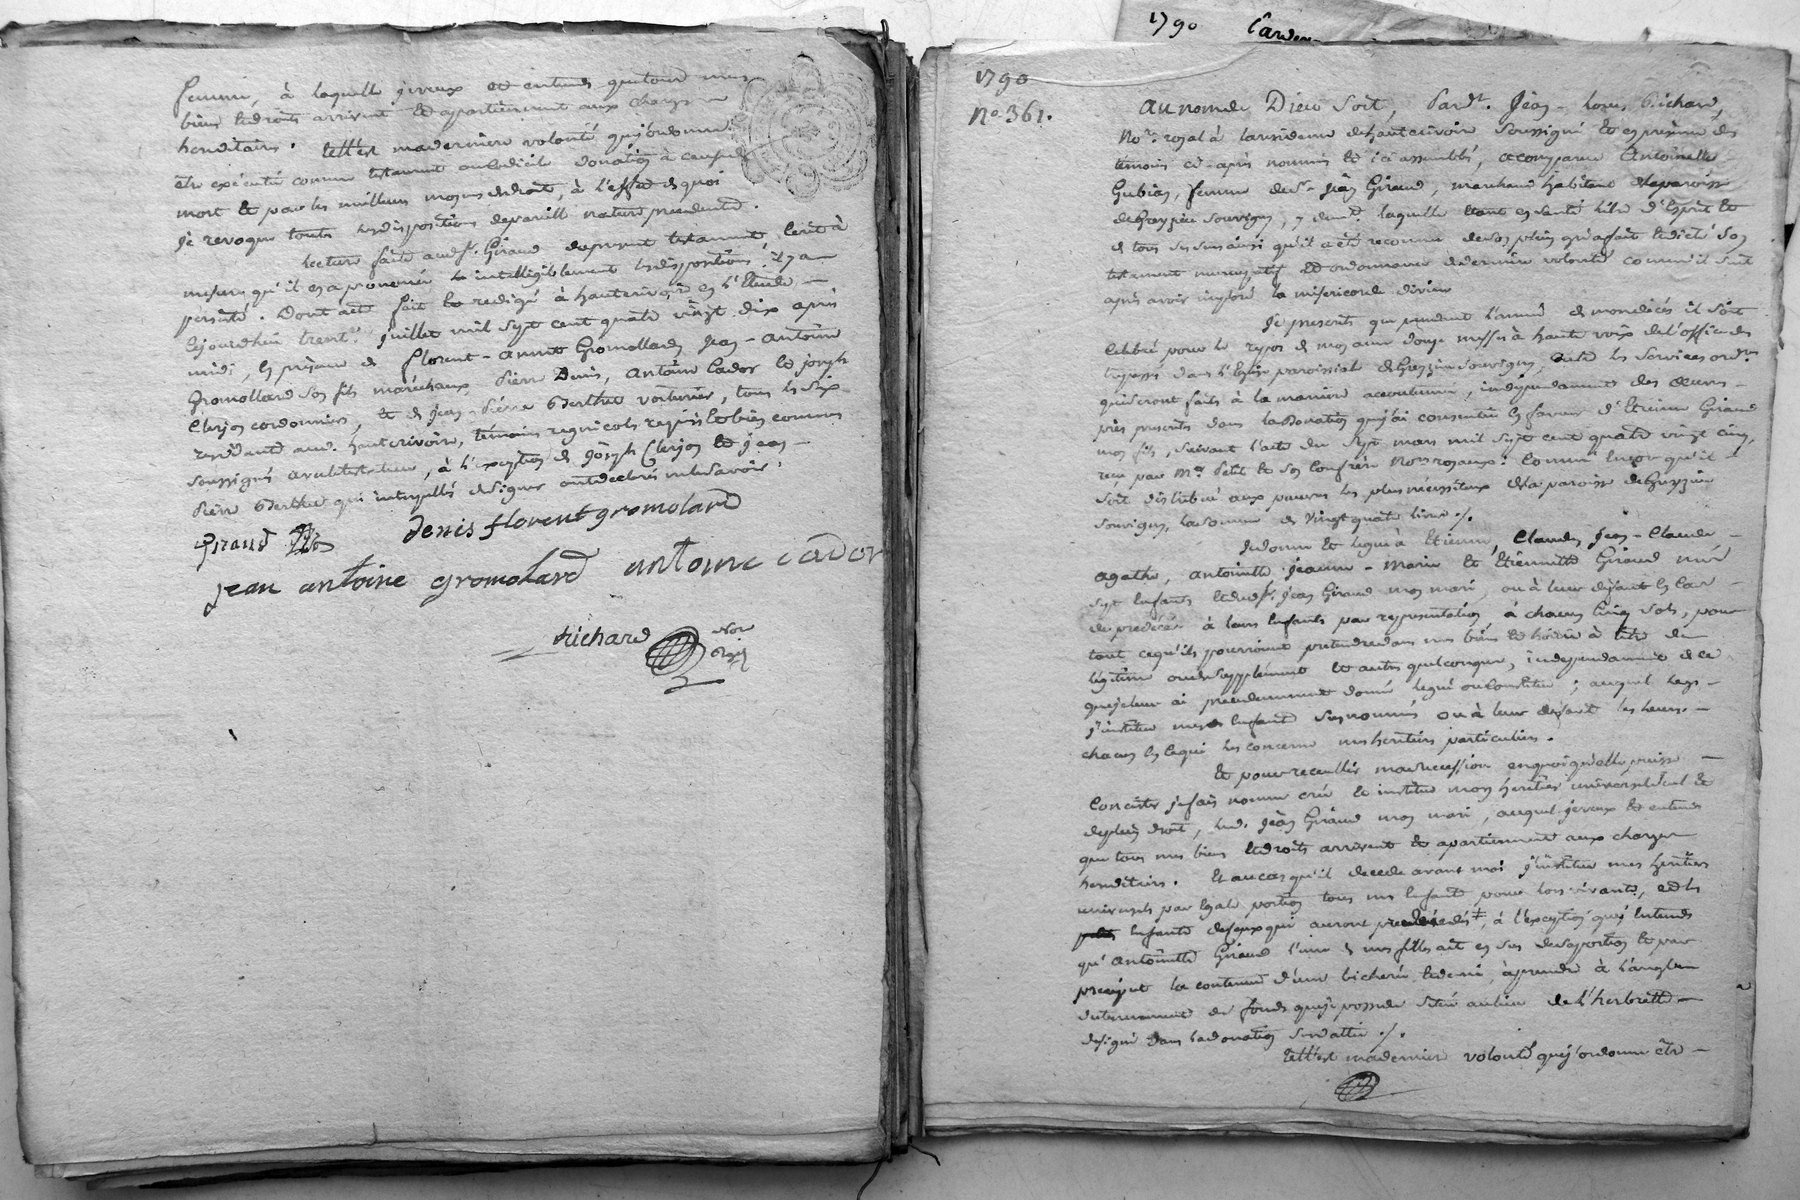 femme, à laquelle je veux et entends que tous mes
biens et droits arrivent et apartiennent aux charges
hereditaires. telle est ma derniere volonté que j'ordonne
etre exécuté comme testament codicile donation à cause de
mort et par les meilleurs moyens de droit, à l'effet de quoi
je revoque toutes dispositions de pareille nature precedentes.
Lecture faite aud. sr. Giraud du present testament, écrit à
mesure qu'il l'a prononcé et intelligiblement les dispositions, il y a
persisté. Dont acte fait et redigé à hauterivoire en l'Etude
cejourd'hui trente juillet mil sept cent quatre vingt dix apres
midi, en présence de florent-annet Gromollard, Jean-Antoine
Gromollard son fils maréchaux, Pierre Denis, Antoine Cador et joseph
Clerjon cordonniers, et de Jean-Pierre Berthet voiturier, tous les six
residents aud. hauterivoire, témoins regnicoles requis lesquels comme
soussignés avec le testateur, à l'exception de joseph Clerjon et jean-
Pierre Berthet qui interpellés de signer ont declaré ne le savoir.
Giraud Denis florent gromolard
jean antoine gromolard antoine cador
Richard Nore
Royal
1790
1790
N.o 361.
Au nom de Dieu soit, Pardt. Jean-Louis Richard,
Nore. royal à la residence de hauterivoire soussigné et en présence des
temoins ci-après nommés et ici assemblés, a comparu Antoinette
Gubian, femme de sr. Jean Giraud, marchand habitant de la paroisse
de Grezzieu Souvigny, y demt. laquelle étant en santé libre d'Esprit et
de tous ses sens ainsi qu'il a été reconnu de son plein gré a fait et dicté son
testament nuncupatif et ordonnance de derniere volonté comme il suit
après avoir imploré la misericorde divine
Je prescris que pendant l'année de mon décés il soit
celebré pour le repos de mon ame douze messes à haute voix de l'office des
trepassés dans l'Eglise paroissiale de Grezzieu Souvigny, outre les services ordres.
qui seront faits à la maniere accoutumée, independamment des œuvres
pies prescrites dans la Donation que j'ai consentie en faveur d'Etienne Giraud
mon fils, suivant l'acte du sept mars mil sept cent quatre vingt cinq,
reçu par Me. Petit et son confrere Nores. royaux: Comme encore qu'il
soit distribué aux pauvres les plus nécessiteux de la paroisse de Grezzieu
Souvigny, la somme de vingt quatre livres ./.
Je donne et legue à Etienne, Claude, Jean-Claude
Agathe, Antoinette, Jeanne-Marie et Etiennette Giraud mes
sept Enfants et dud. sr. Jean Giraud mon mari, ou à leur défaut en cas
de predécés à leurs Enfants par representation, à chacun cinq sols, pour
tout ce qu'ils pourroient pretendre dans mes biens et hoirie à titre de
légitime ou de supplément et autres quelconque, independamment de ce
que je leur ai precedemment donné legué ou constitué; auquel legs
j'institue mesd. Enfants susnommés ou à leur defaut les leurs
chacun en ce qui les concerne mes heritiers particuliers.
Et pour recueillir ma succession en quoi qu'elle puisse
concister je fais nomme crée et institue mon heritier universel seul et
de plein droit, led. Jean Giraud mon mari, auquel je veux et entends
que tous mes biens et droits arrivent et apartiennent aux charges
hereditaires. Et au cas qu'il decede avant moi j'institue mes heritiers
universels par égale portion tous mes Enfants pour lors vivants, et les
Enfants de ceux qui auront predécédés, à l'exception que j'entends
qu'Antoinette Giraud l'une de mes filles ait en sus de sa portion et par
preciput la contenue d'une bicherée et demi, à prendre à l'angle
du fonds que je possede situé au lieu de l'herbette
designé dans la donation susdatée ./.
telle est ma derniere volonté que j'ordonne être